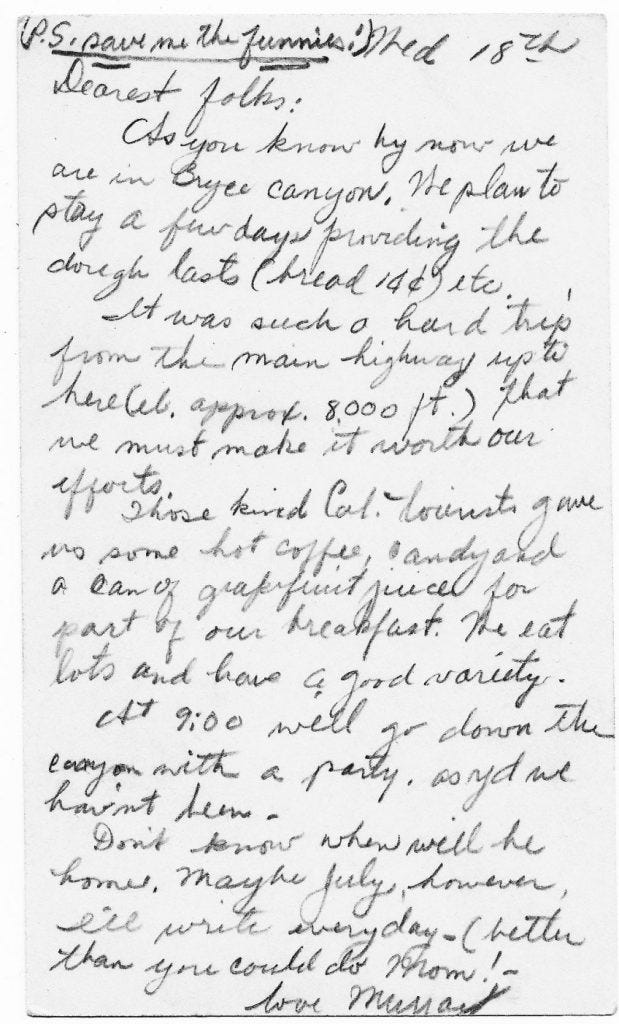 (P.S. save me the funnies!) Wed 18th
Dearest folks:
As you know by now we
are in Bryce canyon. We plan to
stay a few days providing the
dough lasts (bread 14¢) etc.
It was such a hard trip
from the main highway up to
here (el. approx. 8,000 ft.) that
we must make it worth our
efforts.
Those kind Cal. tourists gave
us some hot coffee, candy and
a can of grapefruit juice for
part of our breakfast. We eat
lots and have a good variety.
At 9:00 we'll go down the
canyon with a party. as yet we
hav'nt been.
Don't know when will be
home. Maybe July, however,
I'll write everyday - (better
than you could do Mom! -
love Murray